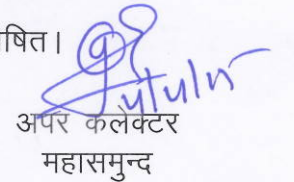 षित।
अपर कलेक्टर
महासमुन्द